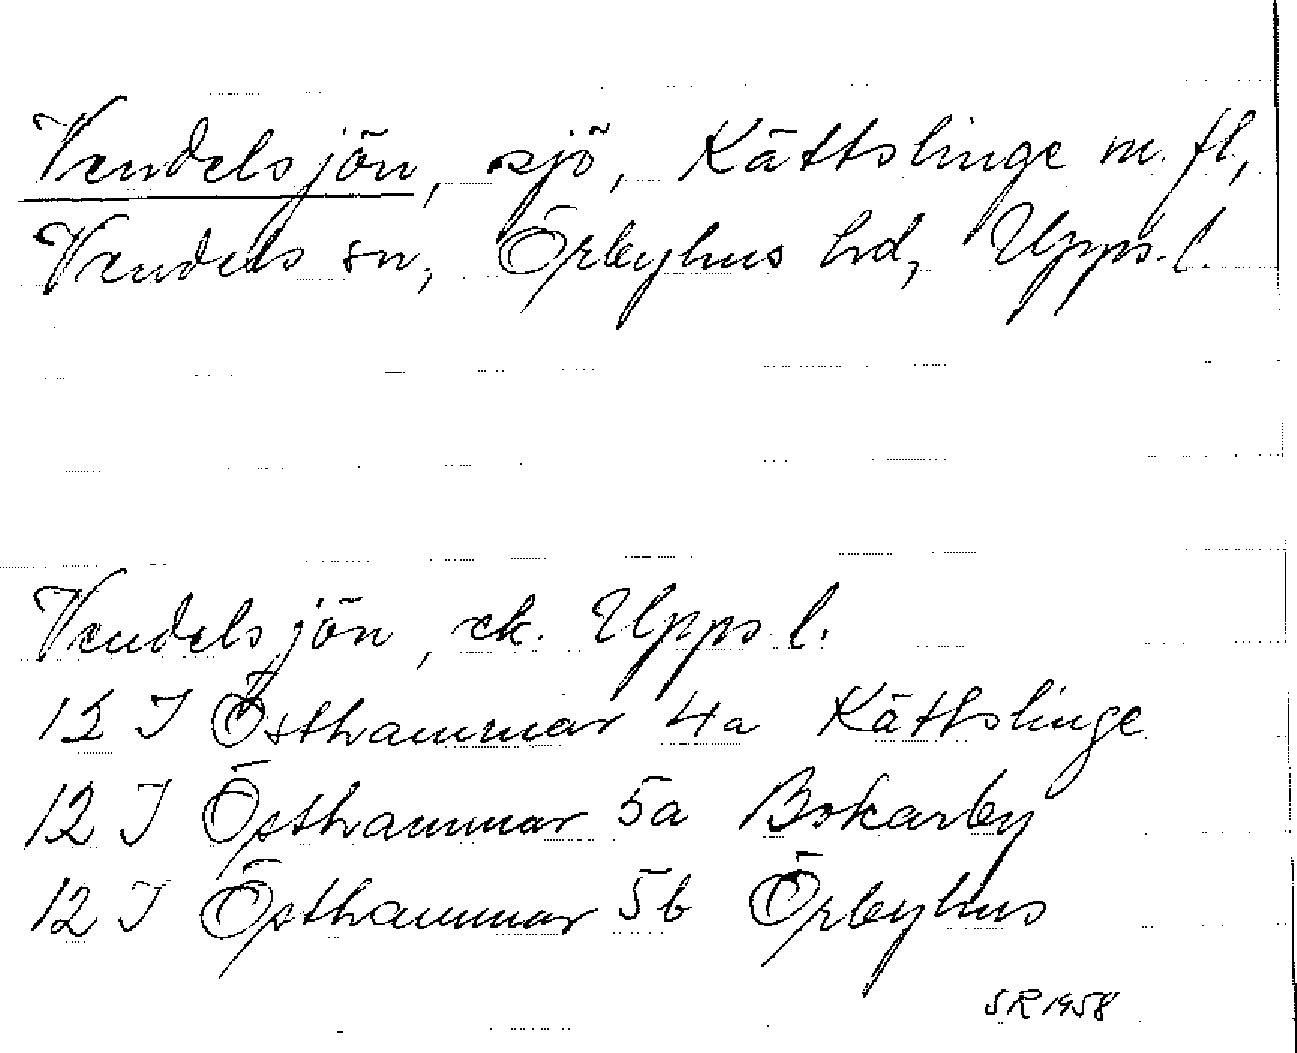 Vendelsjön, sjö, Kättslinge m.fl,
Vendels sn, Örbyhus hd, Upps.l.
Vendelsjön, ek. Upps l.
12 I Östhammar 4a Kättslinge
12 I Östhammar 5a Bokarby
12 I Östhammar 5b Örbyhus
SR 1958